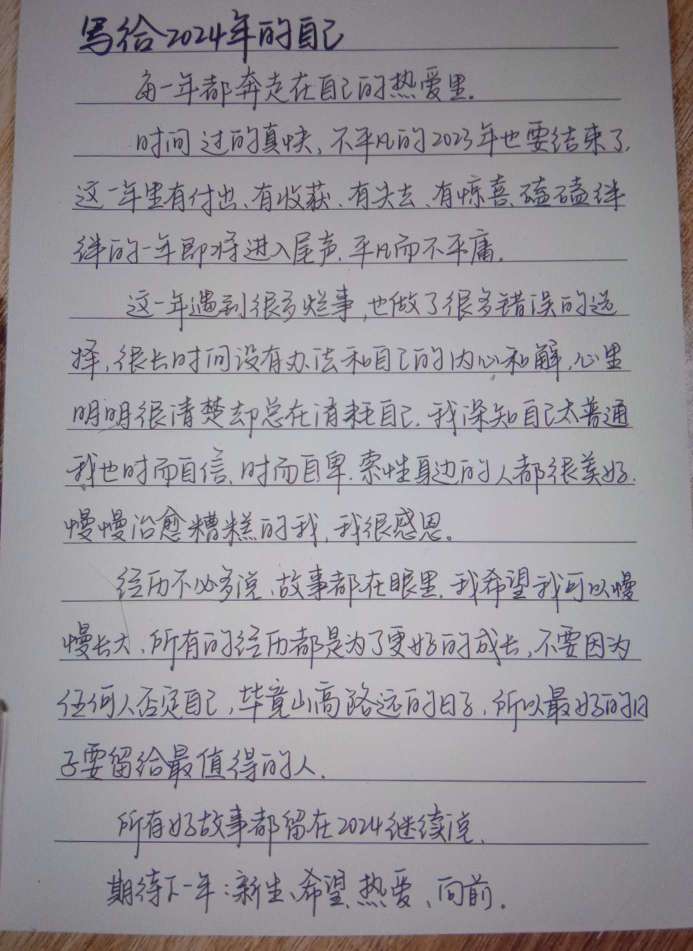 写给2024年的自己
每一年都奔走在自己的热爱里.
时间过的真快、不平凡的2023年也要结束了,
这一年里有付出、有收获、有失去、有惊喜、磕磕绊
绊的一年即将进入尾声.平凡而不平庸.
这一年遇到很多烂事,也做了很多错误的选
择,很长时间没有办法和自己的内心和解,心里
明明很清楚却总在消耗自己.我深知自己太普通
我也时而自信、时而自卑.索性身边的人都很美好.
慢慢治愈糟糕的我,我很感恩。
经历不必多说、故事都在眼里.我希望我可以慢
慢长大、所有的经历都是为了更好的成长,不要因为
任何人否定自己,毕竟山高路远的日子.所以最好的日
子要留给最值得的人.
所有好故事都留在2024继续说.
期待下一年:新生、希望、热爱、向前.